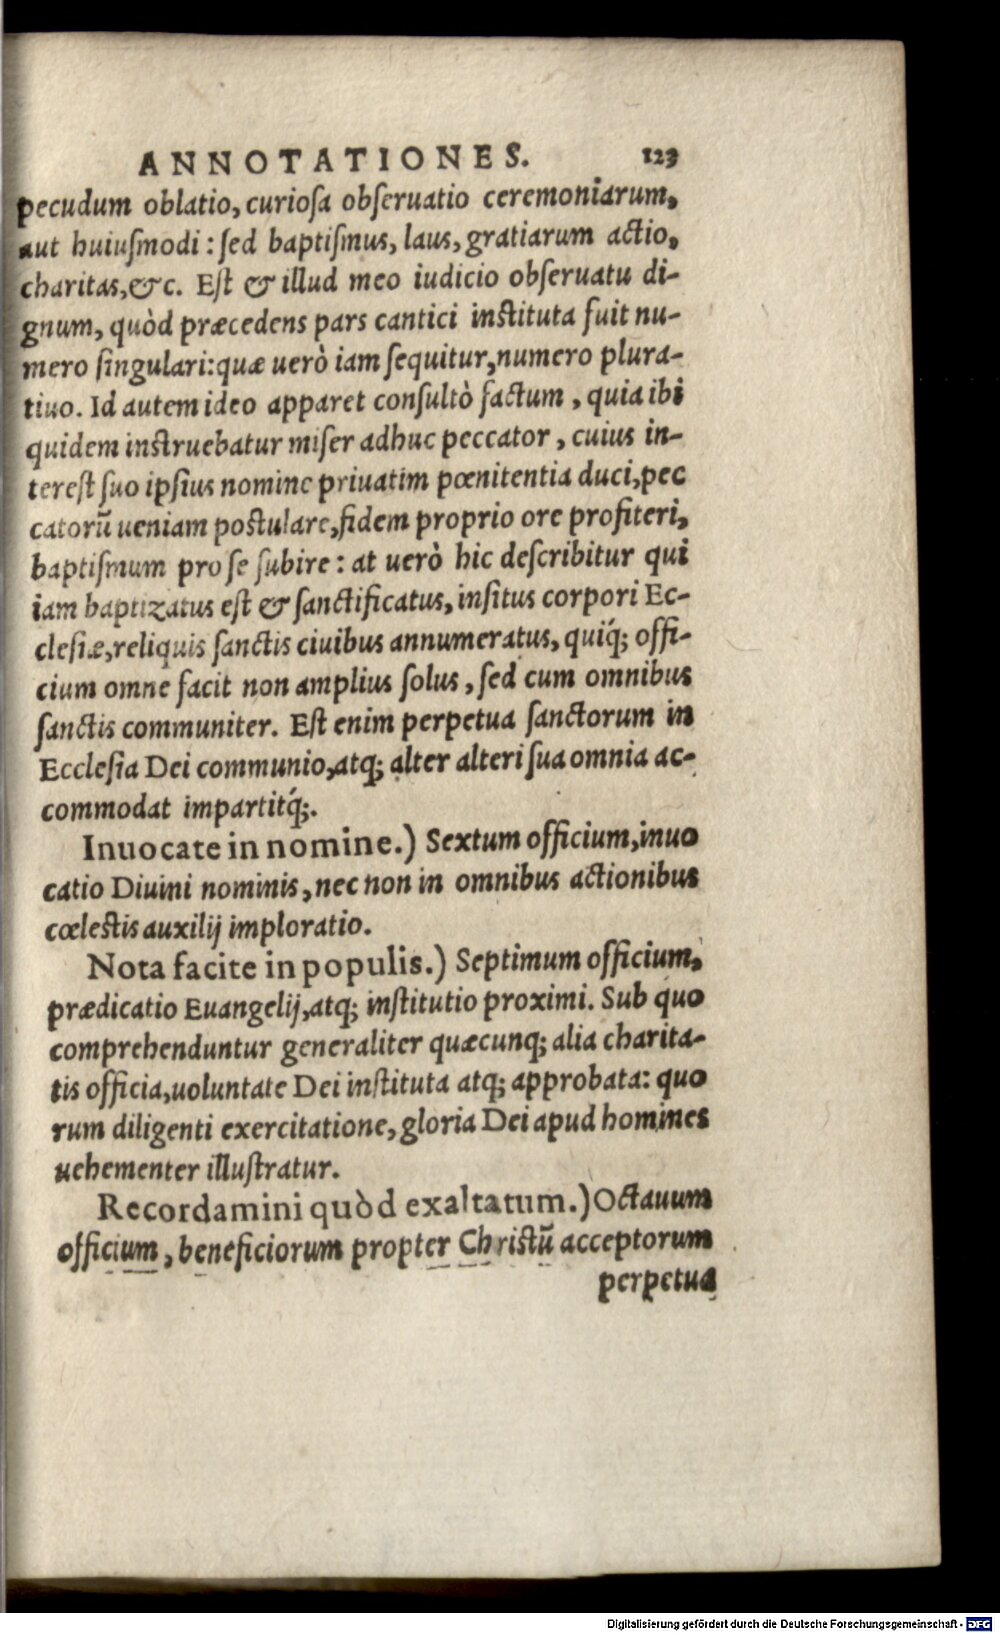 ANNOTATIONES. 123
pecudum oblatio, curioſa obſeruatio ceremoniarum,
aut huiuſmodi: ſed baptiſmus, laus, gratiarum actio,
charitas, &c. Eſt & illud meo iudicio obſeruatu di-
gnum, quòd præcedens pars cantici inſtituta fuit nu-
mero ſingulari: quæ uerò iam ſequitur, numero plura-
tiuo. Id autem ideo apparet conſultò factum, quia ibi
quidem inſtruebatur miſer adhuc peccator, cuius in-
tereſt ſuo ipſius nomine priuatim pœnitentia duci, pec
catorũ ueniam poſtulare, fidem proprio ore profiteri,
baptiſmum pro ſe ſubire: at uerò hic deſcribitur qui
iam baptizatus eſt & ſanctificatus, inſitus corpori Ec-
cleſiæ, reliquis ſanctis ciuibus annumeratus, quiq́; offi-
cium omne facit non amplius ſolus, ſed cum omnibus
ſanctis communiter. Eſt enim perpetua ſanctorum in
Eccleſia Dei communio, atq; alter alteri ſua omnia ac-
commodat impartitq́;.
Inuocate in nomine.) Sextum officium, inuo
catio Diuini nominis, nec non in omnibus actionibus
cœleſtis auxilij imploratio.
Nota facite in populis.) Septimum officium,
prædicatio Euangelij, atq; inſtitutio proximi. Sub quo
comprehenduntur generaliter quæcunq; alia charita-
tis officia, uoluntate Dei inſtituta atq; approbata: quo
rum diligenti exercitatione, gloria Dei apud homines
uehementer illuſtratur.
Recordamini quòd exaltatum.) Octauum
officium, beneficiorum propter Chriſtũ acceptorum
perpetua
Digitalisierung gefördert durch die Deutsche Forschungsgemeinschaft - DFG